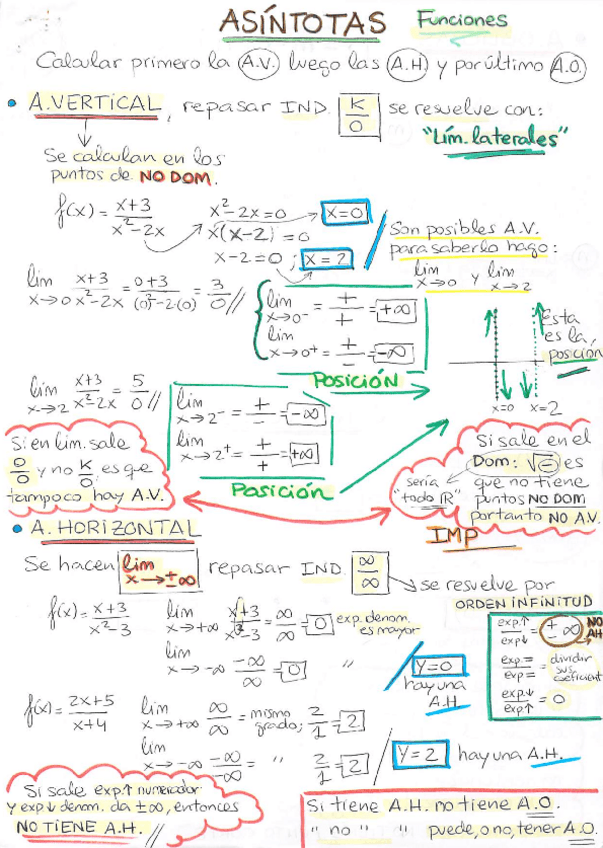 ASÍNTOTAS Funciones
Calcular primero la A.V. luego las A.H y por último A.O.
• A.VERTICAL, repasar IND. K/0 se resuelve con:
"Lím. laterales"
Se calculan en los
puntos de NO DOM.
f(x) = x+3/x²-2x
x²-2x=0
x(x-2)=0
x-2=0; x=2
x=0
Son posibles A.V.
para saberlo hago:
lim x→0 y lim x→2
lim x→0 x+3/x²-2x = 0+3/(0)²-2·(0) = 3/0 //
lim x→0⁻ = +/+ = +∞
lim x→0⁺ = +/- = -∞
POSICIÓN
Esta
es la
posición
x=0 x=2
lim x→2 x+3/x²-2x = 5/0 //
lim x→2⁻ = +/- = -∞
lim x→2⁺ = +/+ = +∞
Posición
Si en lim. sale
0/0 y no K/0, es que
tampoco hay A.V.
Si sale en el
Dom: √⊖ es
que no tiene
puntos NO DOM
por tanto NO A.V.
sería
"todo ℝ"
IMP
• A. HORIZONTAL
Se hacen lim x→±∞ repasar IND. ∞/∞
se resuelve por
ORDEN INFINITUD
f(x) = x+3/x²-3
lim x→+∞ x+3/x²-3 = ∞/∞ = 0 exp. denom.
es mayor
lim x→-∞ -∞/∞ = 0 "
Y=0
hay una
A.H
exp.↑/exp↓ = ±∞ NO AH
exp.=/exp= = dividir
sus
coeficient
exp.↓/exp.↑ = 0
f(x) = 2x+5/x+4
lim x→+∞ ∞/∞ = mismo
grado; 2/1 = 2
lim x→-∞ -∞/-∞ = " 2/1 = 2
Y=2 hay una A.H.
Si sale exp.↑ numerador
y exp↓ denom. da ±∞, entonces
NO TIENE A.H. //
Si tiene A.H. no tiene A.O.
" no " " puede, o no, tener A.O.